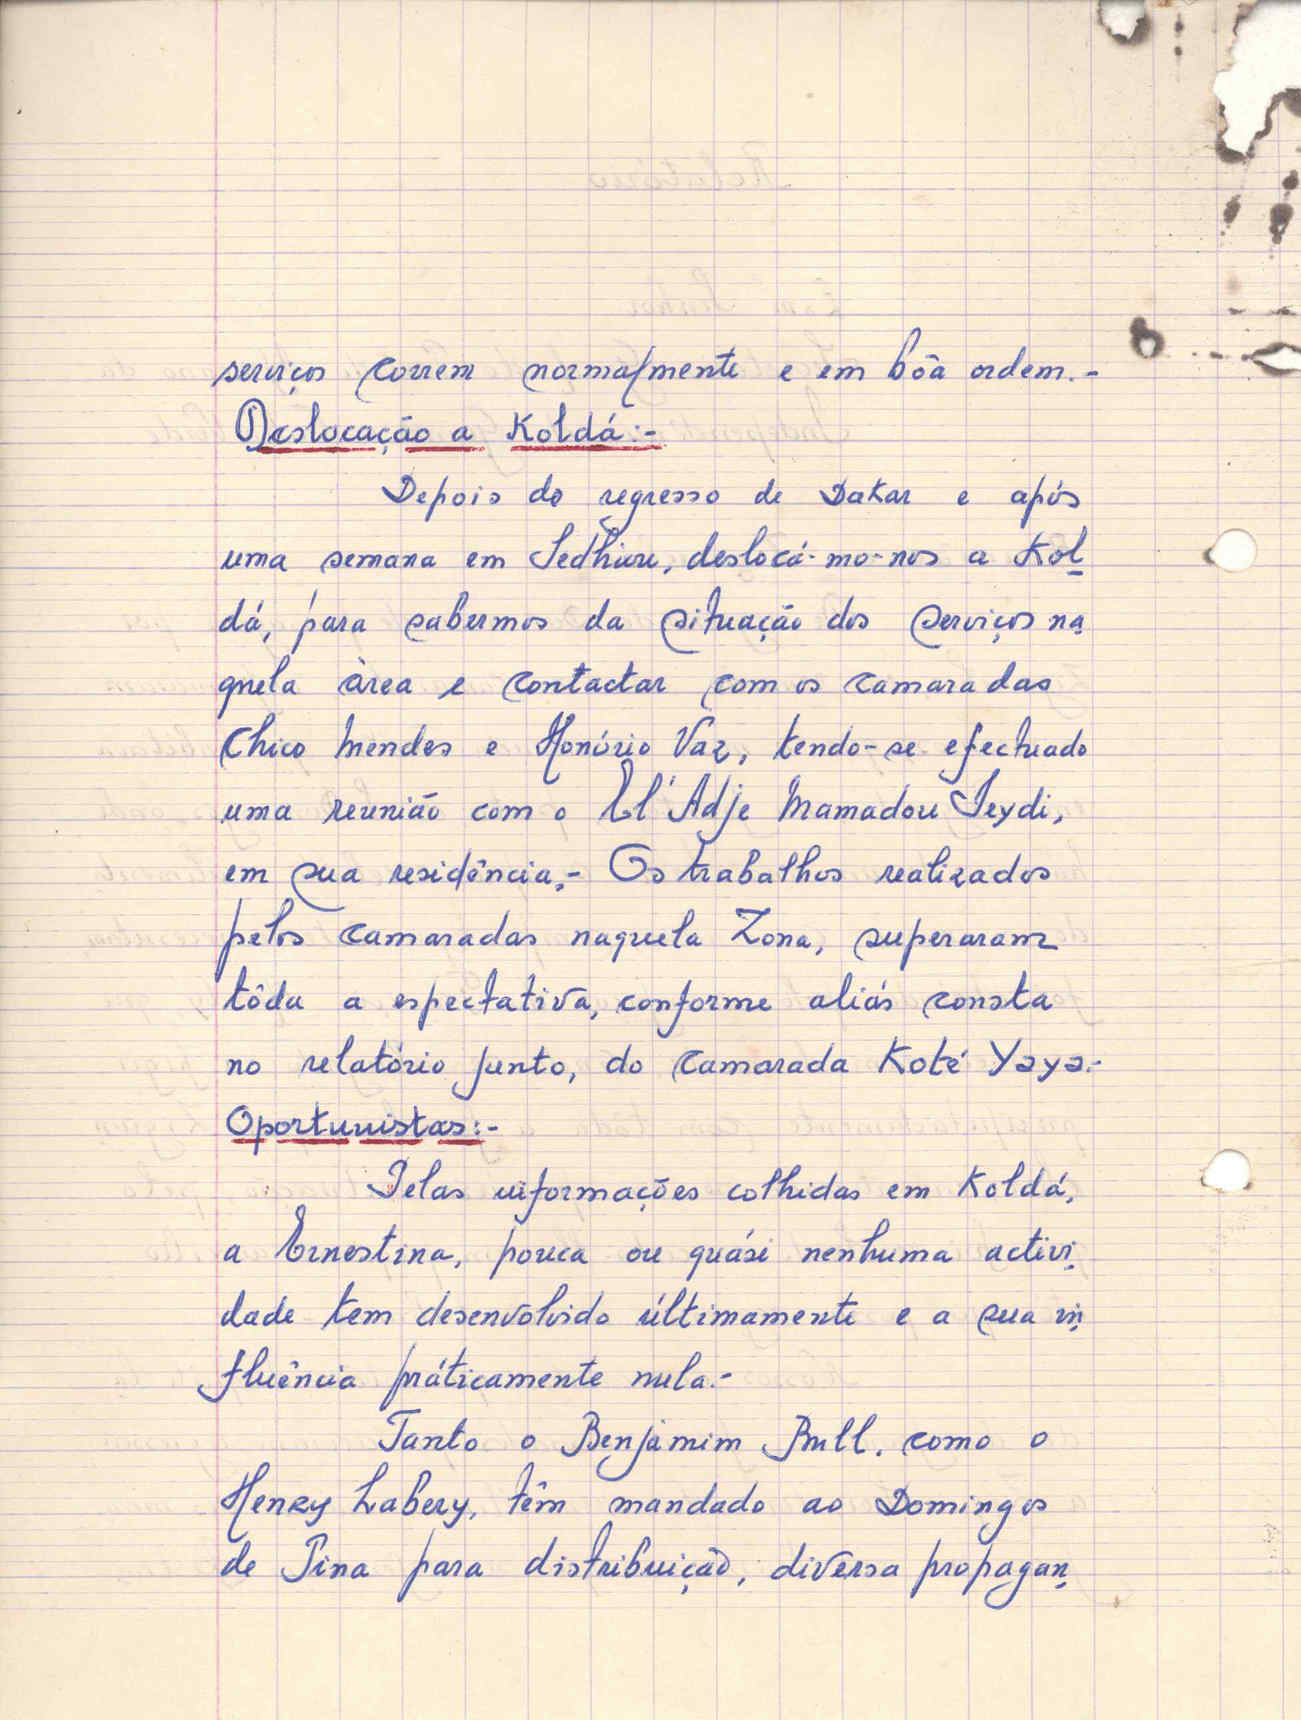 serviços correm normalmente e em bôa ordem.-
Deslocação a Koldá:-
Depois do regresso de Dakar e após
uma semana em Sedhiou, deslocá-mo-nos a Kol
dá, para sabermos da situação dos serviços na
quela àrea e contactar com os camaradas
Chico Mendes e Honório Vaz, tendo-se efectuado
uma reunião com o El'Adje Mamadou Seydi,
em sua residência.- Os trabalhos realizados
pelos camaradas naquela Zona, superaram
tôda a espectativa, conforme aliás consta
no relatório junto, do camarada Koté Yaya.-
Oportunistas:-
Pelas informações colhidas em Koldá,
a Ernestina, pouca ou quási nenhuma activi
dade tem desenvolvido últimamente e a sua in
fluência práticamente nula.-
Tanto o Benjamim Bull, como o
Henry Labery, têm mandado ao Domingos
de Pina para distribuição, diversa propagan